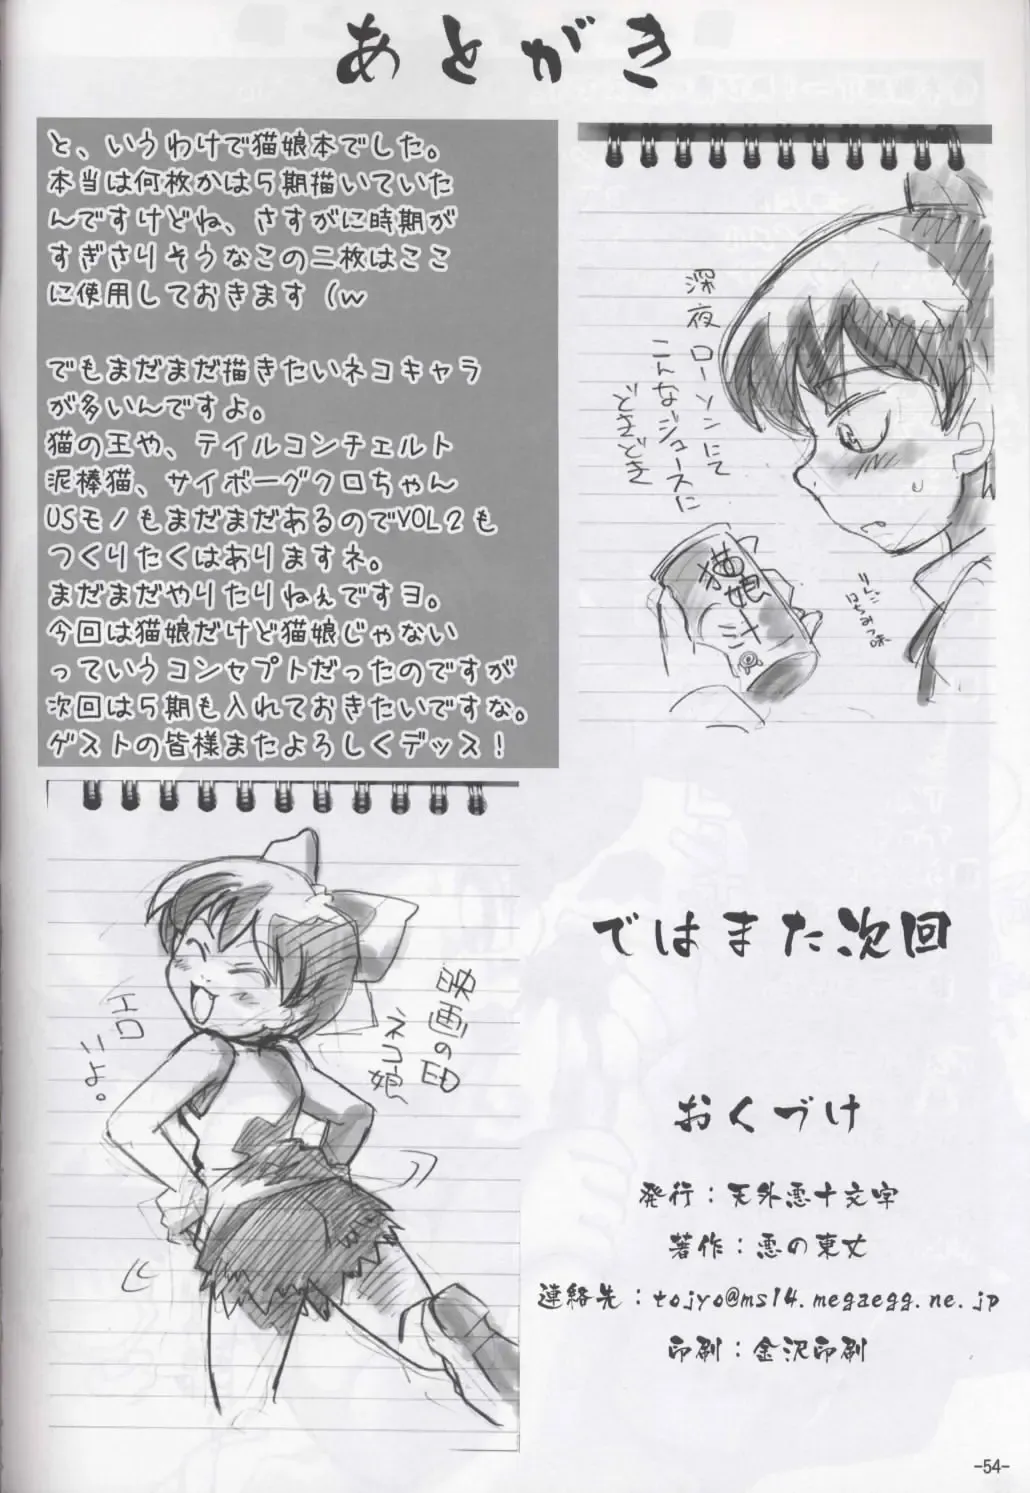 あとがき
と、いうわけで猫娘本でした。
本当は何枚かは5期描いていた
んですけどね、さすがに時期が
すぎさりそうなこの二枚はここ
に使用しておきます(w
でもまだまだ描きたいネコキャラ
が多いんですよ。
猫の王や、テイルコンチェルト
泥棒猫、サイボーグクロちゃん
USモノもまだまだあるのでVOL2も
つくりたくはありますネ。
まだまだやりたりねぇですヨ。
今回は猫娘だけど猫娘じゃない
っていうコンセプトだったのですが
次回は5期も入れておきたいですな。
ゲストの皆様またよろしくデッス!
深夜
ローソンにて
こんなジュースに
どきどき
猫娘
りんご
はちみつ味
映画のED
ネコ娘
エロ
いよ。
ではまた次回
おくづけ
発行:天外悪十文字
著作:悪の東丈
連絡先:tojyo@ms14.megaegg.ne.jp
印刷:金沢印刷
-54-